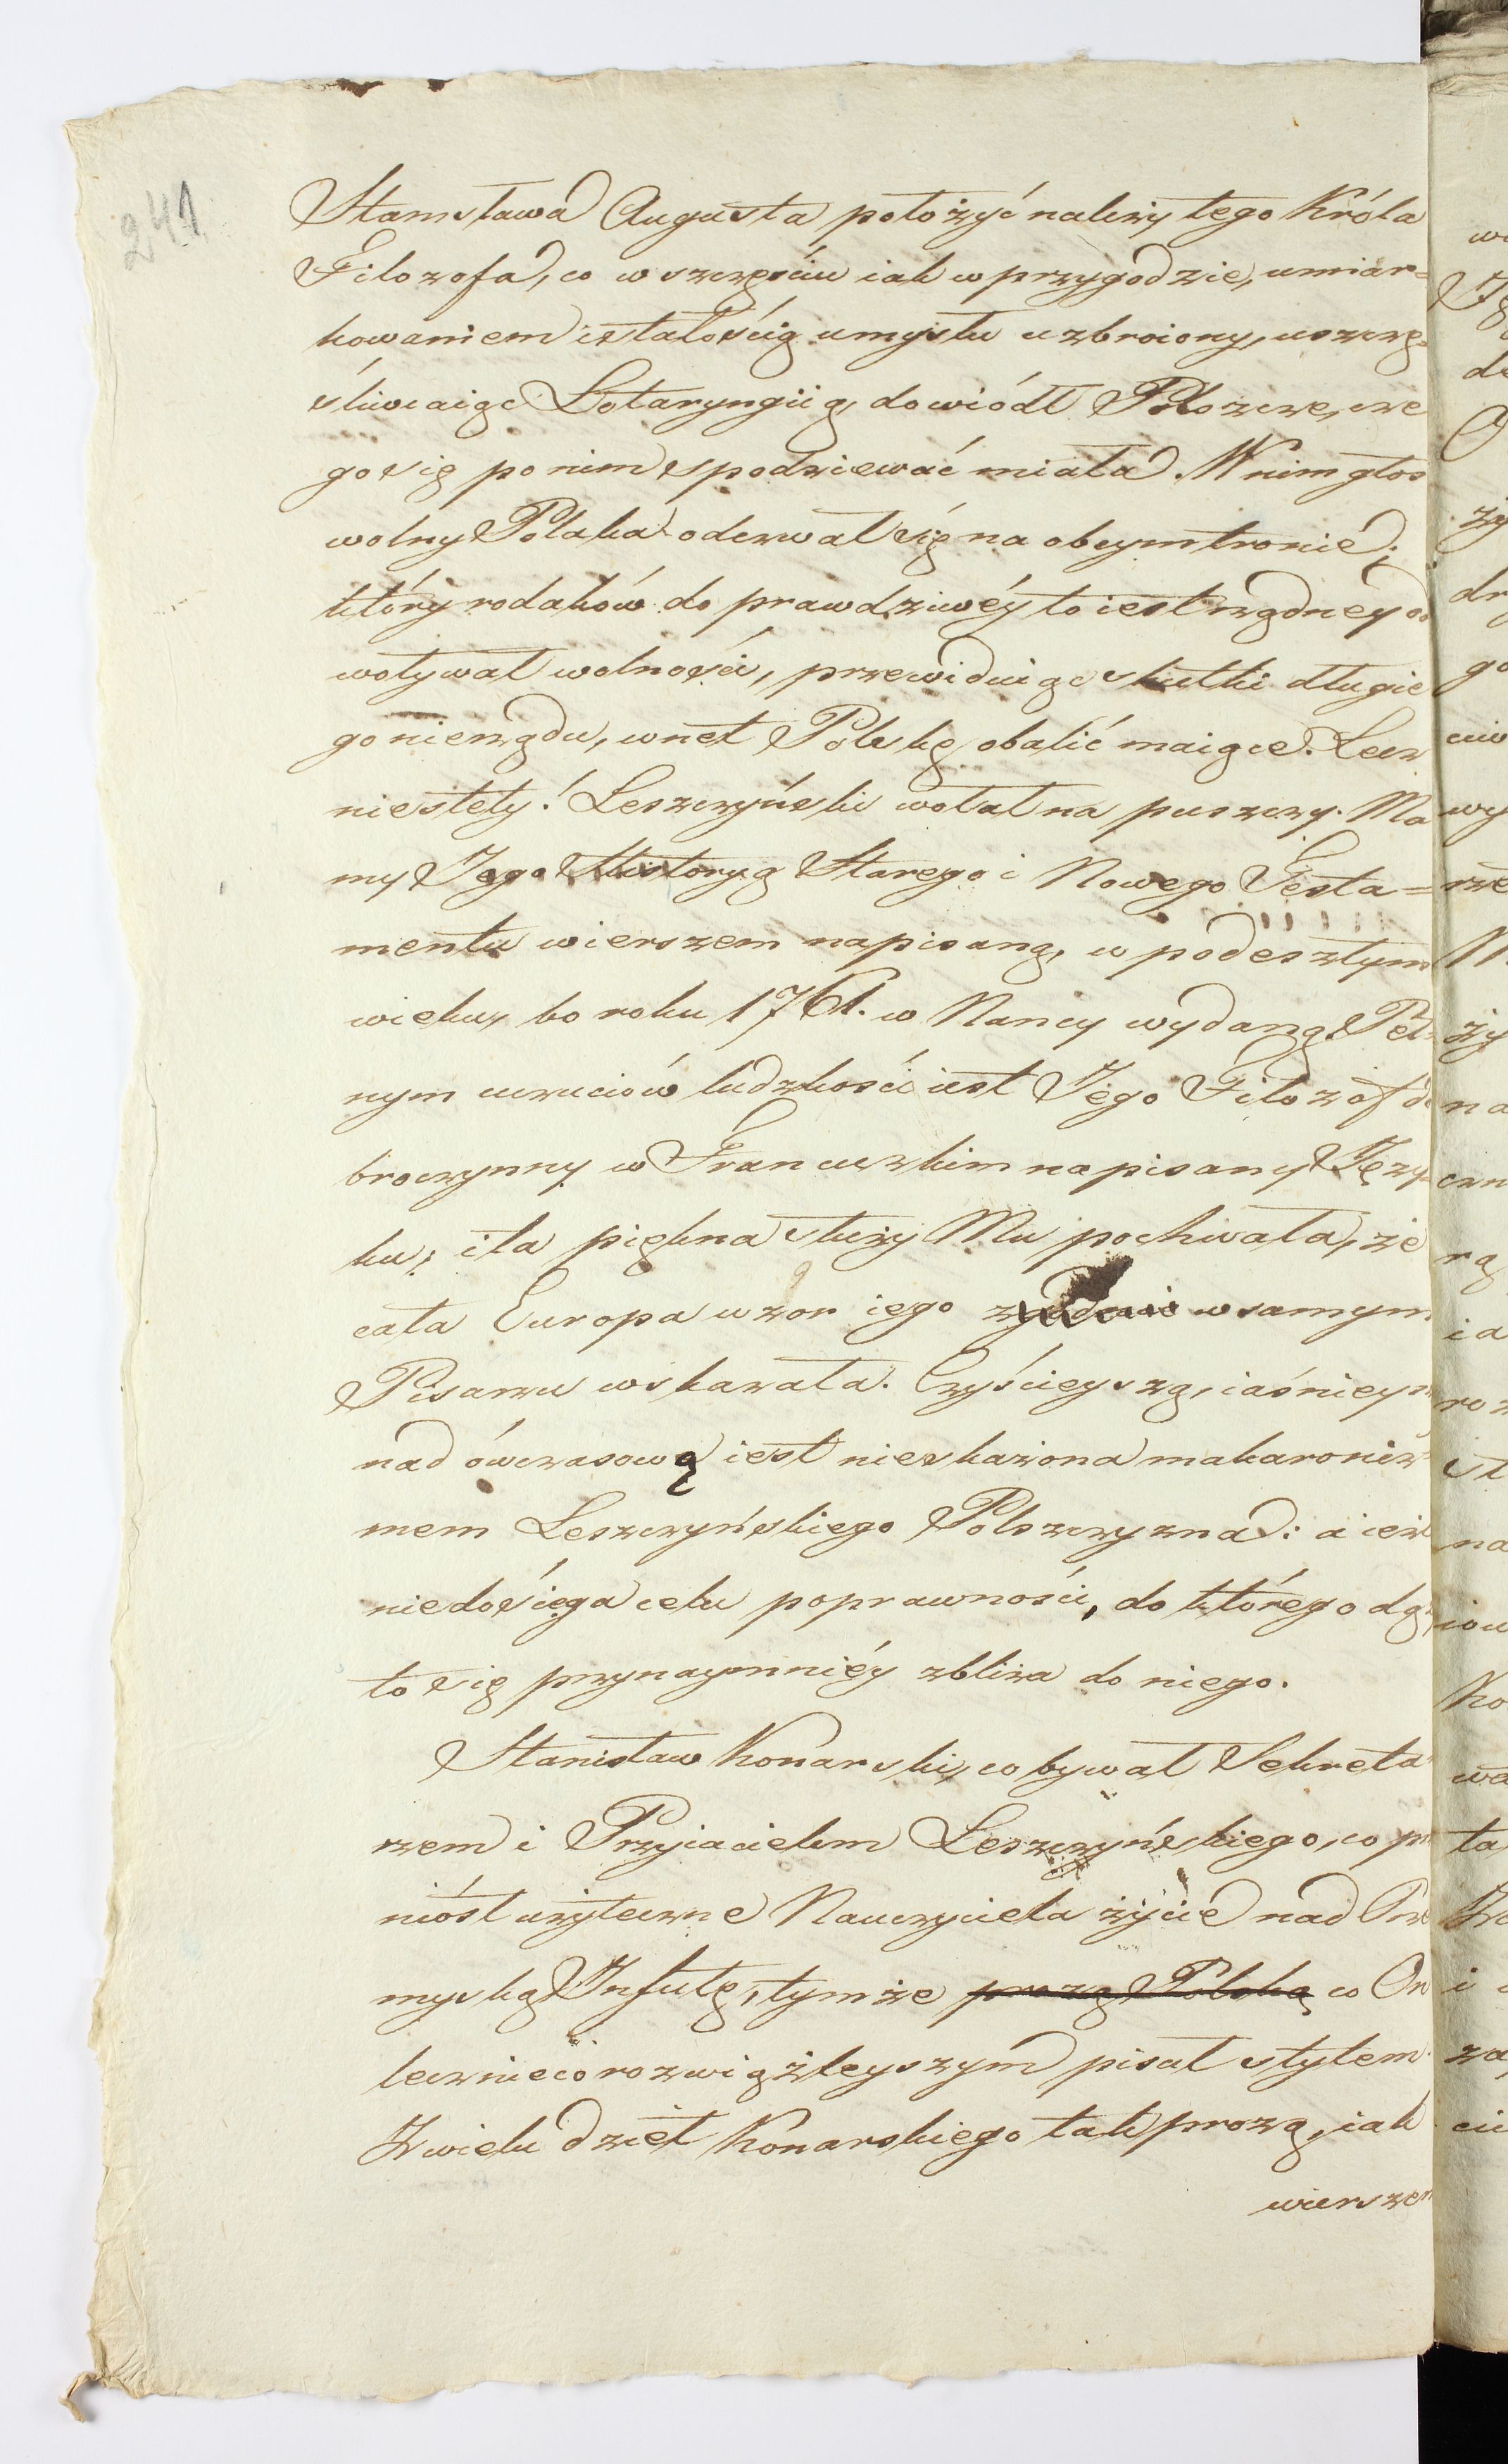 241
Stanisława Augusta położyć należy tego Króla
Filozofa, co w szczęściu iak w przygodzie, umiar=
kowaniem i stałością umysłu uzbroiony, uszczę=
śliwiaiąc Lotaryngiią, dowiódł Polszcze, cze
go się po nim spodziewać miała. W nim głos
wolny Polaka odezwał się na obcym tronie;
który rodaków do prawdziwéy to iest rządney od
woływał wolności, przewiduiąc skutki długie
go nierządu, wnet Polskę obalić maiące. Lecz
niestety! Leszczyński wołał na puszczy. Ma
my Jego Historyą Starego i Nowego Testa=
mentu wierszem napisaną, w podeszłym
wieku, bo roku 1761. w Nancy wydaną. Peł=
nym uczuciów ludzkości iest Jego Filozof do
broczynny w Francuzkim napisany Języ=
ku; i ta piękna służy Mu pochwała, że
cała Europa wzor iego w samym
Pisarzu wskazała. Czyścieyszą, iaśnieysz
nad ówczasową iest nieskażona makaroniz
mem Leszczyńskiego Polszczyzna: a ieżl
niedosięga celu poprawności, do którego dąż
to się przynaymniéy zbliża do niego.
Stanisław Konarski, co bywał Sekreta
rzem i Przyiacielem Leszczyńskiego, co prz
niósł użyteczne Nauczyciela życie nad Prze
myską Infułę, tymże prozą Polską co On
lecz nieco rozwiąźleyszym pisał stylem.
Z wielu dzieł Konarskiego tak prozą, iak
wierszem